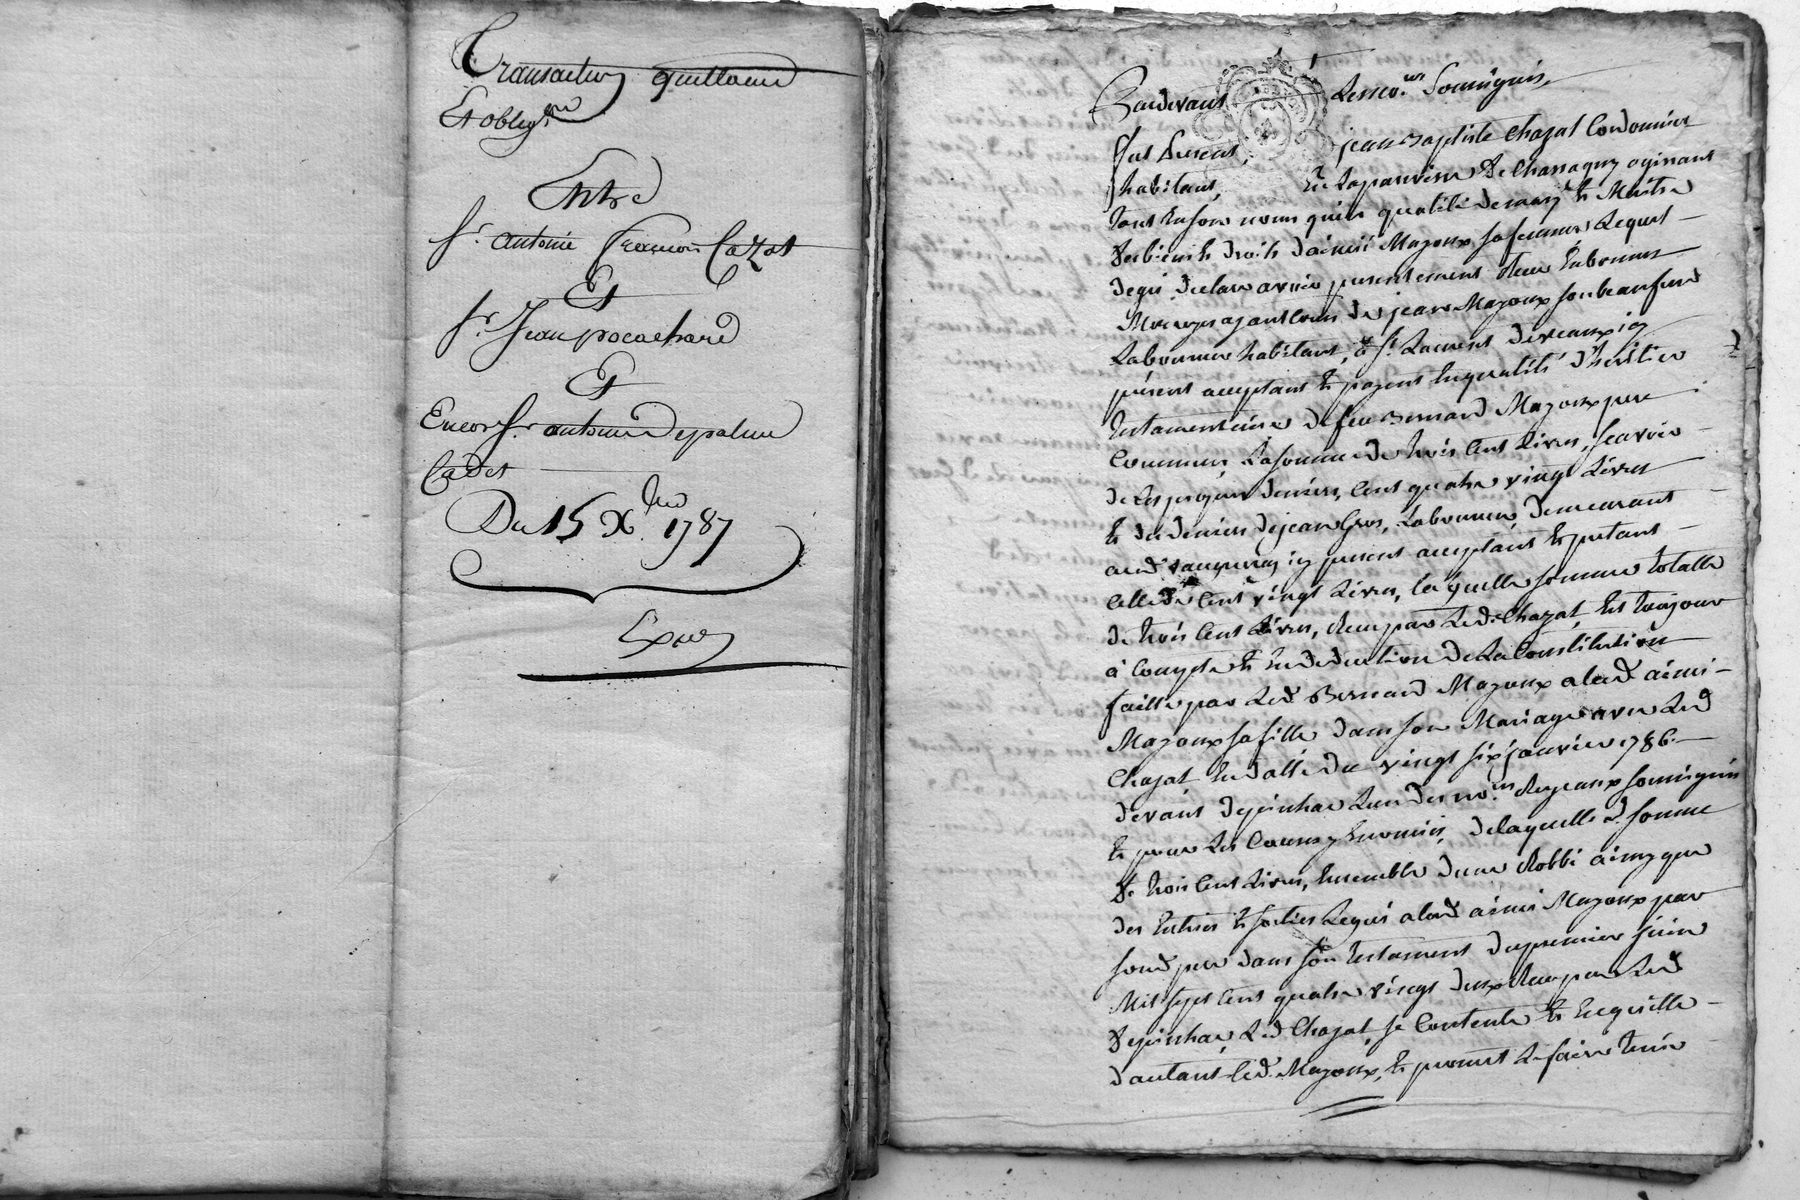 Transaction quittance
Et oblig.on
Entre
Sr. antoine françois Cazot
Et
Sr. Jean pocachard
Et
Encor Sr. antoine depalme
Cadet
Du 15 Xbre 1787
Expee
Pardevant Les no.res Soussignés,
fut present, jean Baptiste Chazat Cordonnier
habitant, En La parroisse De Chassagny agissant
tant En son nom qu'en qualité de mary Et Maitre
des biens Et droits d'aimé Mazoux sa femme Lequel
de gré declare avoir presentement Reçu En bonnes
ayant cours de jean Mazoux son beau frere
Laboureur habitant, a St. Laurent devaux icy
present acceptant Et payant En qualité d'heritier
testamentaire de feu Bernard Mazoux pere
Commun, La somme de trois Cent Livres, scavoir
de Ses propres deniers, Cent quatre vingt Livres
Et des deniers de jean Gros, Laboureur, demeurant
aud. icy present acceptant Et pretant
Celle de Cent vingt Livres, laquelle somme totalle
de trois Cent Livres, Reçue par Led. Chazat, Est toujour
à Compte Et En deduction de La Constitution
faitte par Led. Bernard Mazoux a lad. aimé
Mazoux sa fille dans son Mariage avec Led.
Chazat En datte du vingt six janvier 1786
devant depinhac L'un des no.res Royaux soussignés
Et pour Les Causes y Enoncées, de laquelle d. somme
de trois Cent Livres, Ensemble d'une Robbe ainsy que
des Entrées Et sorties Legués a lad. aimé Mazoux par
sond. pere dans son testament du premier juin
Mil sept Cent quatre vingt deux Reçu par Led.
depinhac, Led. Chazat, se Contente Et En quitte
d'autant led. Mazoux, Et promet Le faire tenir